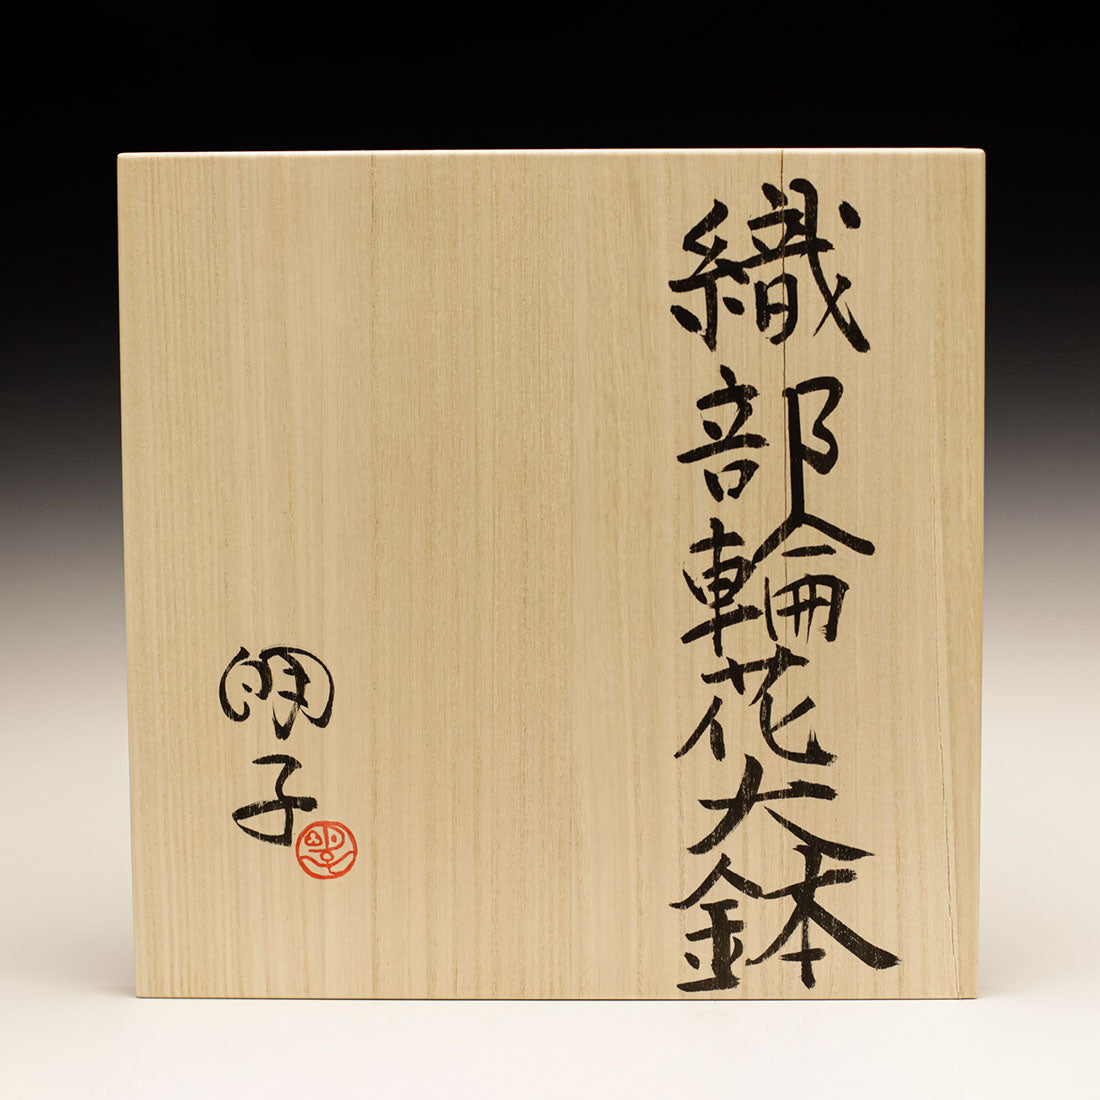 織部輪花大鉢
明子